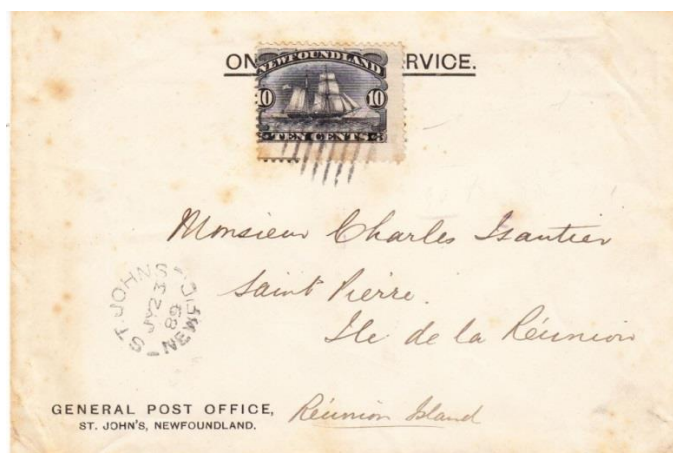 ON RVICE.
NEWFOUNDLAND
10 10
TEN CENTS
Monsieur Charles Isautier
Saint Pierre.
Ile de la Réunion
ST. JOHN'S NEWF'D.
23
89
GENERAL POST OFFICE,
ST. JOHN'S, NEWFOUNDLAND.
Réunion Island